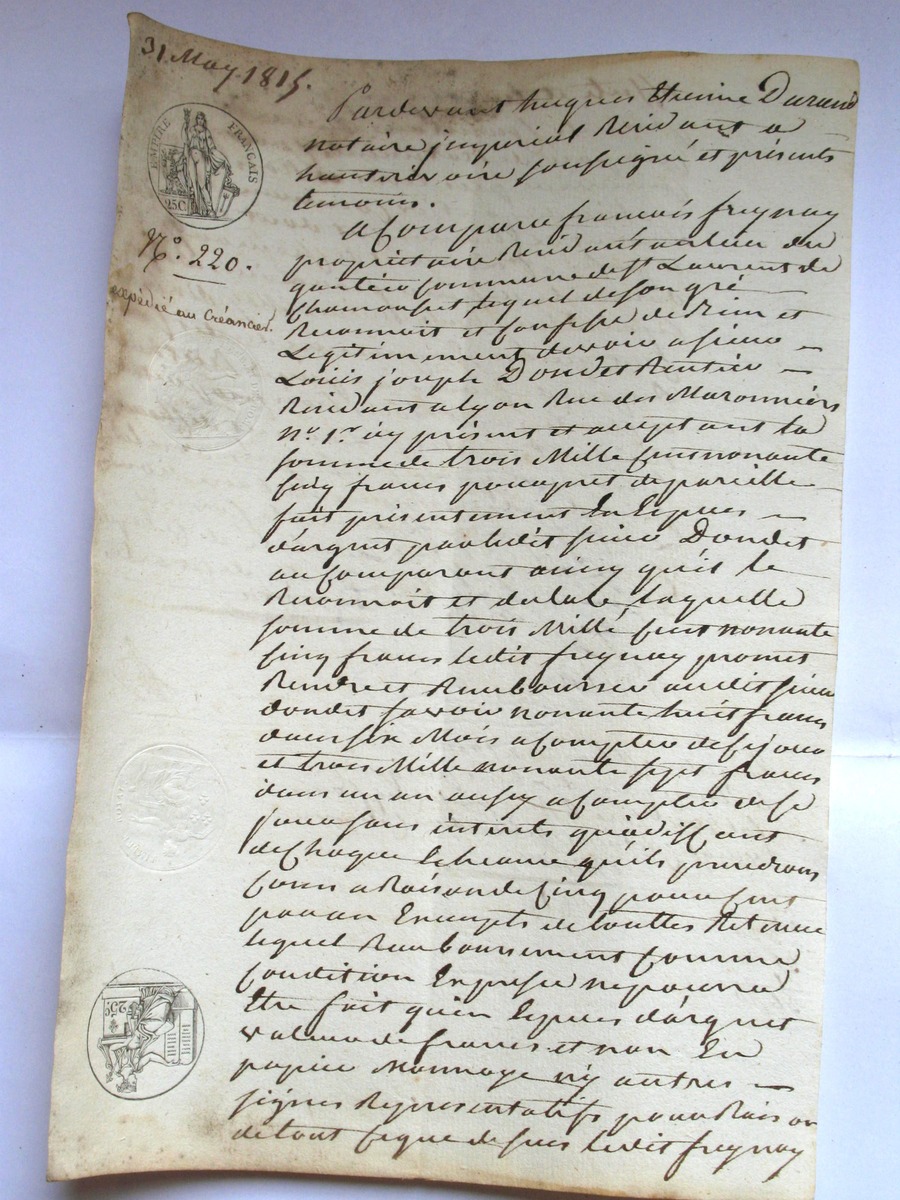 31 May 1815.
EMPIRE FRANÇAIS
25C
N.° 220.
expédié au Créancier.
Pardevant hugues Etienne Durand
notaire imperial Residant a
hauterivoire soussigné et présents
temoins.
a Comparu francois freynay
proprietaire Residant au lieu du
commune de St Laurent de
Chamousset lequel de son gré
Reconnoit et Confesse de Bien et
Legitimement devoir a sieur
Louis joseph Dondet Rentier
Residant a lyon Rue des Maronniers
n.° 1.er icy présent et acceptant la
somme de trois Mille Cent nonante
Cinq francs pour pret de pareille
fait présentement En Espèces
d'argent par ledit sieur Dondet
au Comparant ainsy qu'il le
Reconnoit et declare, laquelle
somme de trois Mille Cent nonante
Cinq francs ledit freynay promet
Rendre et Rembourser audit sieur
dondet savoir nonante huit francs
dans six Mois a Compter de Ce jour
et trois Mille nonante sept francs
dans un an aussy a Compter de Ce
jour sans interets jusques
de Chaque Echeance qu'ils prendront
Cours a Raison de Cinq pour Cent
par an Exempts de touttes Retenue
lequel Remboursement Comme
Condition Expresse ne pourra
Etre fait qu'en Espèces d'argent
valeur de francs et non En
papier Monnoye n'y autres
signes Représentatifs pour Raison
de tout Ceque dessus ledit freynay
25C